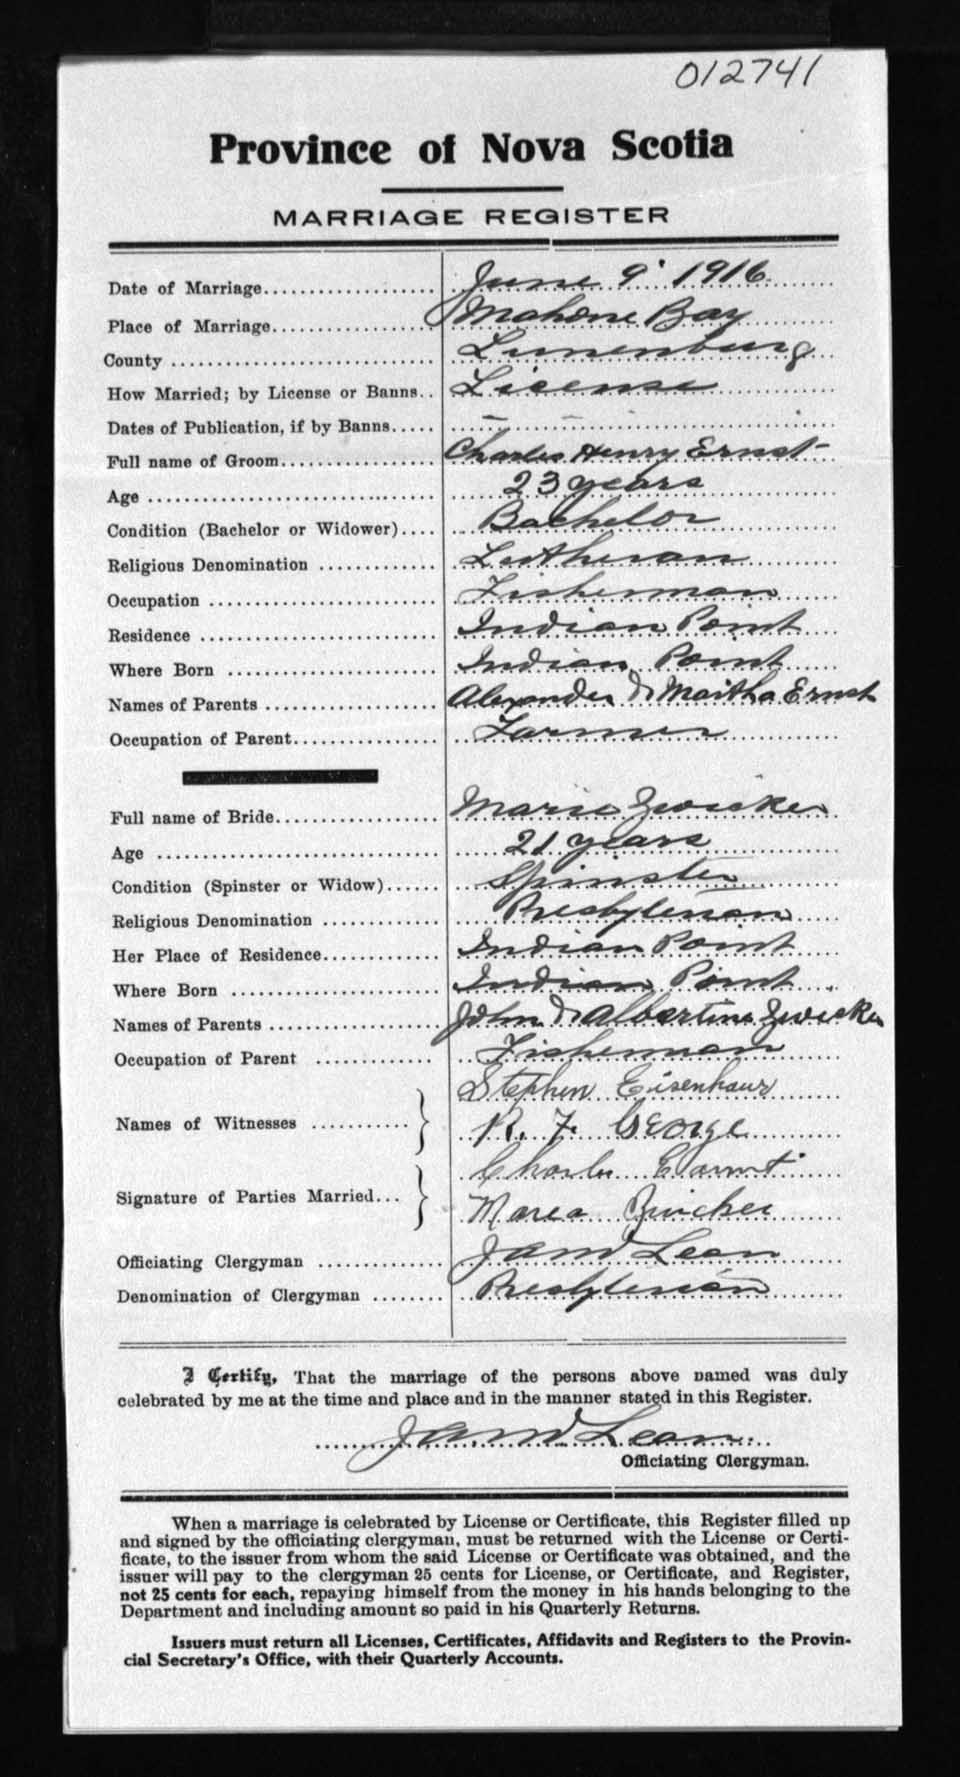 012741
Province of Nova Scotia
MARRIAGE REGISTER
Date of Marriage June 9 1916
Place of Marriage Mahone Bay
County Lunenburg
How Married; by License or Banns License
Dates of Publication, if by Banns
Full name of Groom Charles Henry Ernst
Age 23 years
Condition (Bachelor or Widower) Bachelor
Religious Denomination Lutheran
Occupation Fisherman
Residence Indian Point
Where Born Indian Point
Names of Parents Alexander & Martha Ernst
Occupation of Parent Farmer
Full name of Bride Marie Zwicker
Age 21 years
Condition (Spinster or Widow) Spinster
Religious Denomination Presbyterian
Her Place of Residence Indian Point
Where Born Indian Point
Names of Parents John & Albertina Zwicker
Occupation of Parent Fisherman
Stephen Eisenhaur
Names of Witnesses
R. F. George
Charles
Signature of Parties Married
Zwicker
Officiating Clergyman
Denomination of Clergyman Presbyterian
I Certify, That the marriage of the persons above named was duly
celebrated by me at the time and place and in the manner stated in this Register.
Officiating Clergyman.
When a marriage is celebrated by License or Certificate, this Register filled up
and signed by the officiating clergyman, must be returned with the License or Certi-
ficate, to the issuer from whom the said License or Certificate was obtained, and the
issuer will pay to the clergyman 25 cents for License, or Certificate, and Register,
not 25 cents for each, repaying himself from the money in his hands belonging to the
Department and including amount so paid in his Quarterly Returns.
Issuers must return all Licenses, Certificates, Affidavits and Registers to the Provin-
cial Secretary's Office, with their Quarterly Accounts.